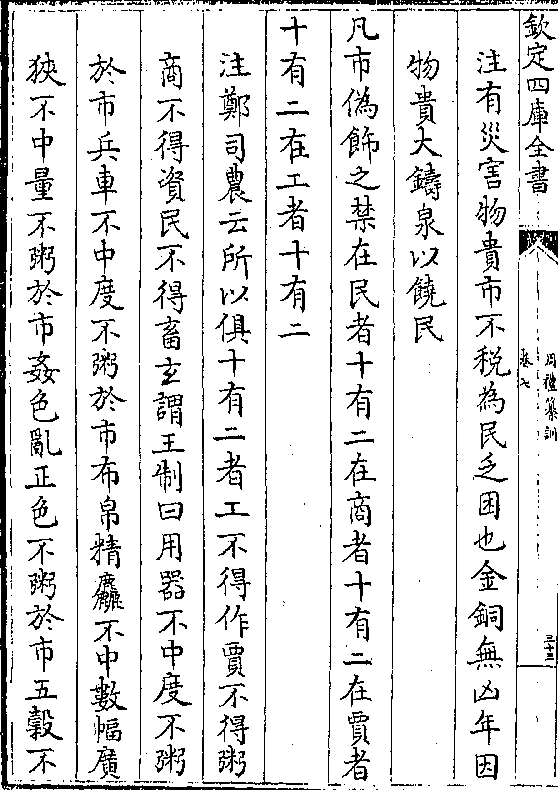 欽定四庫全書
周禮纂訓
卷七
三十三
注有災害物貴市不稅為民乏困也金銅無凶年因
物貴大鑄泉以饒民
凡市偽飾之禁在民者十有二在商者十有二在賈者
十有二在工者十有二
注鄭司農云所以俱十有二者工不得作賈不得粥
商不得資民不得畜玄謂王制曰用器不中度不粥
於市兵車不中度不粥於市布帛精麤不中數幅廣
狹不中量不粥於市姦色亂正色不粥於市五穀不